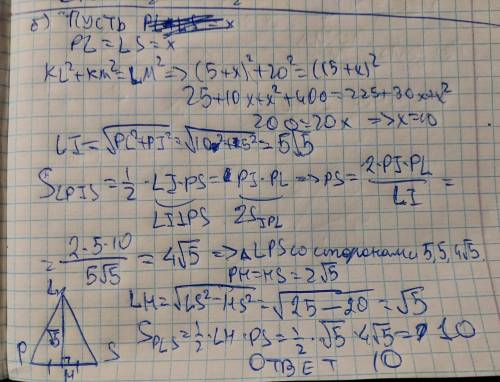 б) Пусть
PL=LS=x
KL²+KM²=LM² => (5+x)²+20²=(15+x)²
25+10x+x²+400=225+30x+x²
200=20x => x=10
LI=√(PL²+PI²)=√(10²+5²)=5√5
S_LPIS=1/2·LI·PS=PI·PL => PS=2·PI·PL/LI=
LI⊥PS 2S_IPL
=2·5·10/5√5=4√5 => △LPS со сторонами 5,5,4√5.
PH=HS=2√5
LH=√(LS²-HS²)=√(25-20)=√5
S_PLS=1/2·LH·PS=1/2·√5·4√5=10
ОТВЕТ 10
L
√5
P H S